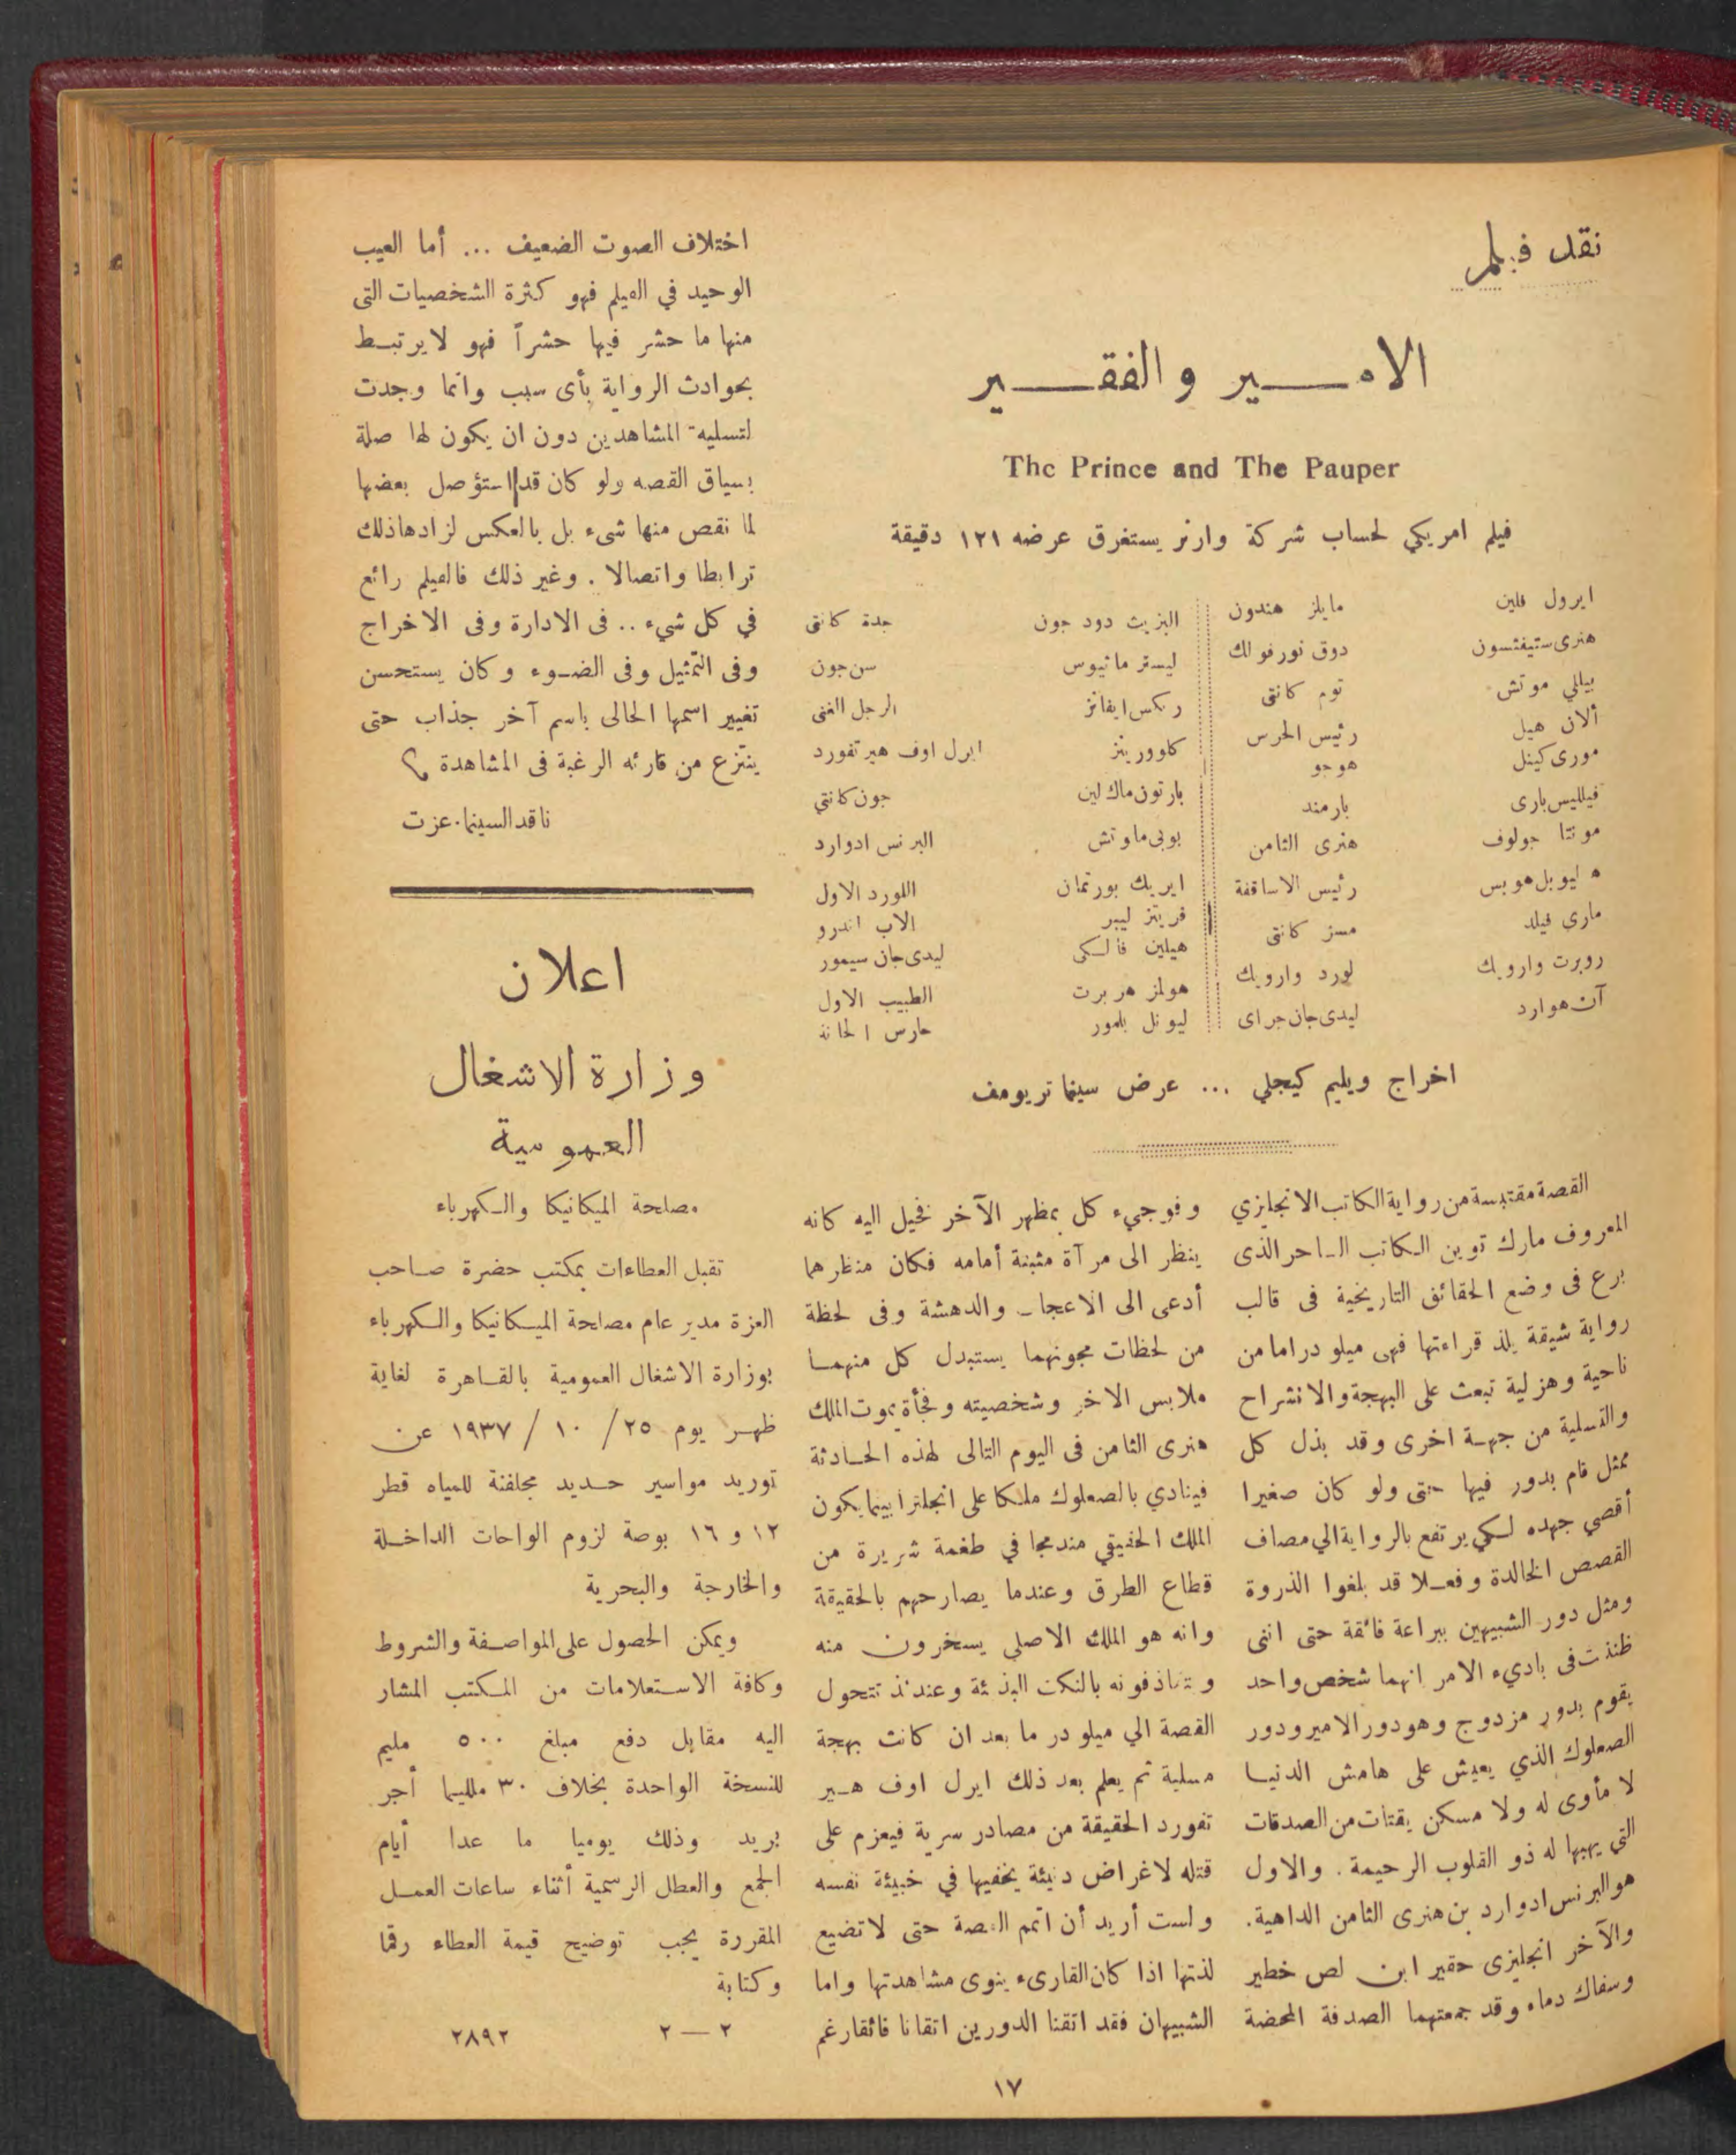 نقد فيلم
الامير والفقير
The Prince and The Pauper
فيلم امريكي لحساب شركة وارنر يستغرق عرضه ١٢١ دقيقة
ايرول فلين مايلز هندون
هنرى ستيفنسون دوق نورفولك
بيللي موتش توم كانتى
ألان هيل رئيس الحرس
مورى كينل هوجو
فيلليس بارى بارمند
مونتا جولوف هنرى الثامن
هاليوبل هوبس رئيس الاساقفة
مارى فيلد مسز كانتى
روبرت وارويك لورد وارويك
آن هوارد ليدى جان جراى
اليزيث دود جون جدة كانتى
ليستر ماثيوس سن جون
ركس ايفانز الرجل الغنى
كلوورينز ايرل اوف هيرتفورد
بارتون ماك لين جون كانتي
بوبى ماوتش البرنس ادوارد
ايريك بورتمان اللورد الاول
فريتز ليبر الاب اندرو
هيلين فالسكى ليدى جان سيمور
هولمز هربرت الطبيب الاول
ليونل بلمور حارس الحانة
اخراج ويليم كيجلي ... عرض سينما تريومف
القصة مقتبسة من رواية الكاتب الانجليزي
المعروف مارك توين الكاتب الساحر الذى
برع فى وضع الحقائق التاريخية فى قالب
رواية شيقة يلذ قراءتها فهى ميلودراما من
ناحية وهزلية تبعث على البهجة والانشراح
والتسلية من جهة اخرى وقد بذل كل
ممثل قام بدور فيها حتى ولو كان صغيرا
أقصي جهده لكي يرتفع بالرواية الي مصاف
القصص الخالدة وفعلا قد بلغوا الذروة
ومثل دور الشبيهين ببراعة فائقة حتى اننى
ظننت فى باديء الامر انهما شخص واحد
يقوم بدور مزدوج وهو دور الامير ودور
الصعلوك الذي يعيش على هامش الدنيا
لا مأوى له ولا مسكن يقتات من الصدقات
التي يهبها له ذو القلوب الرحيمة . والاول
هو البرنس ادوارد بن هنرى الثامن الداهية .
والآخر انجليزى حقير ابن لص خطير
وسفاك دماه وقد جمعتهما الصدفة المحضة
وفوجيء كل بمظهر الآخر فخيل اليه كانه
ينظر الى مرآة مثبتة أمامه فكان منظرهما
أدعى الى الاعجاب والدهشة وفى لحظة
من لحظات مجونهما يستبدل كل منهما
ملابس الاخر وشخصيته وفجأة يموت الملك
هنرى الثامن فى اليوم التالى لهذه الحادثة
فينادي بالصعلوك ملكا على انجلترا بينما يكون
الملك الحقيقي مندمجا في طغمة شريرة من
قطاع الطرق وعندما يصارحهم بالحقيقة
وانه هو الملك الاصلي يسخرون منه
ويتقاذفونه بالنكت البذيئة وعندئذ تتحول
القصة الي ميلودرما بعد ان كانت بهجة
مسلية ثم يعلم بعد ذلك ايرل اوف هير
تفورد الحقيقة من مصادر سرية فيعزم على
قتله لاغراض دنيئة يخفيها في خبيئة نفسه
ولست أريد أن اتمم القصة حتى لا تضيع
لذتها اذا كان القارىء ينوى مشاهدتها واما
الشبيهان فقد اتقنا الدورين اتقانا فائقا رغم
اختلاف الصوت الضعيف ... أما العيب
الوحيد في الفيلم فهو كثرة الشخصيات التى
منها ما حشر فيها حشراً فهو لا يرتبط
بحوادث الرواية بأى سبب وانما وجدت
لتسلية المشاهدين دون ان يكون لها صلة
بسياق القصه ولو كان قد استؤصل بعضها
لما نقص منها شىء بل بالعكس لزادها ذلك
ترابطا واتصالا . وغير ذلك فالفيلم رائع
في كل شيء .. فى الادارة وفى الاخراج
وفى التمثيل وفى الضوء وكان يستحسن
تغيير اسمها الحالى باسم آخر جذاب حتى
ينتزع من قارئه الرغبة فى المشاهدة
ناقد السينما . عزت
اعلان
وزارة الاشغال
العمومية
مصلحة الميكانيكا والكهرباء
تقبل العطاءات بمكتب حضرة صاحب
العزة مدير عام مصلحة الميكانيكا والكهرباء
بوزارة الاشغال العمومية بالقاهرة لغاية
ظهر يوم ٢٥ / ١٠ / ١٩٣٧ عن
توريد مواسير حديد مجلفنة للمياه قطر
١٢ و ١٦ بوصة لزوم الواحات الداخلة
والخارجة والبحرية
ويمكن الحصول على المواصفة والشروط
وكافة الاستعلامات من المكتب المشار
اليه مقابل دفع مبلغ ٥٠٠ مليم
للنسخة الواحدة بخلاف ٣٠ ملليما أجر
بريد وذلك يوميا ما عدا أيام
الجمع والعطل الرسمية أثناء ساعات العمل
المقررة يجب توضيح قيمة العطاء رقما
وكتابة
٢ — ٢ ٢٨٩٢
١٧